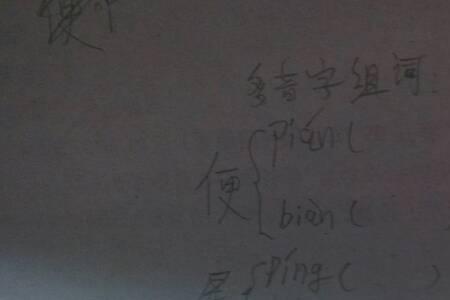 便
多音字组词:
pián (
便
biàn (
píng ( )